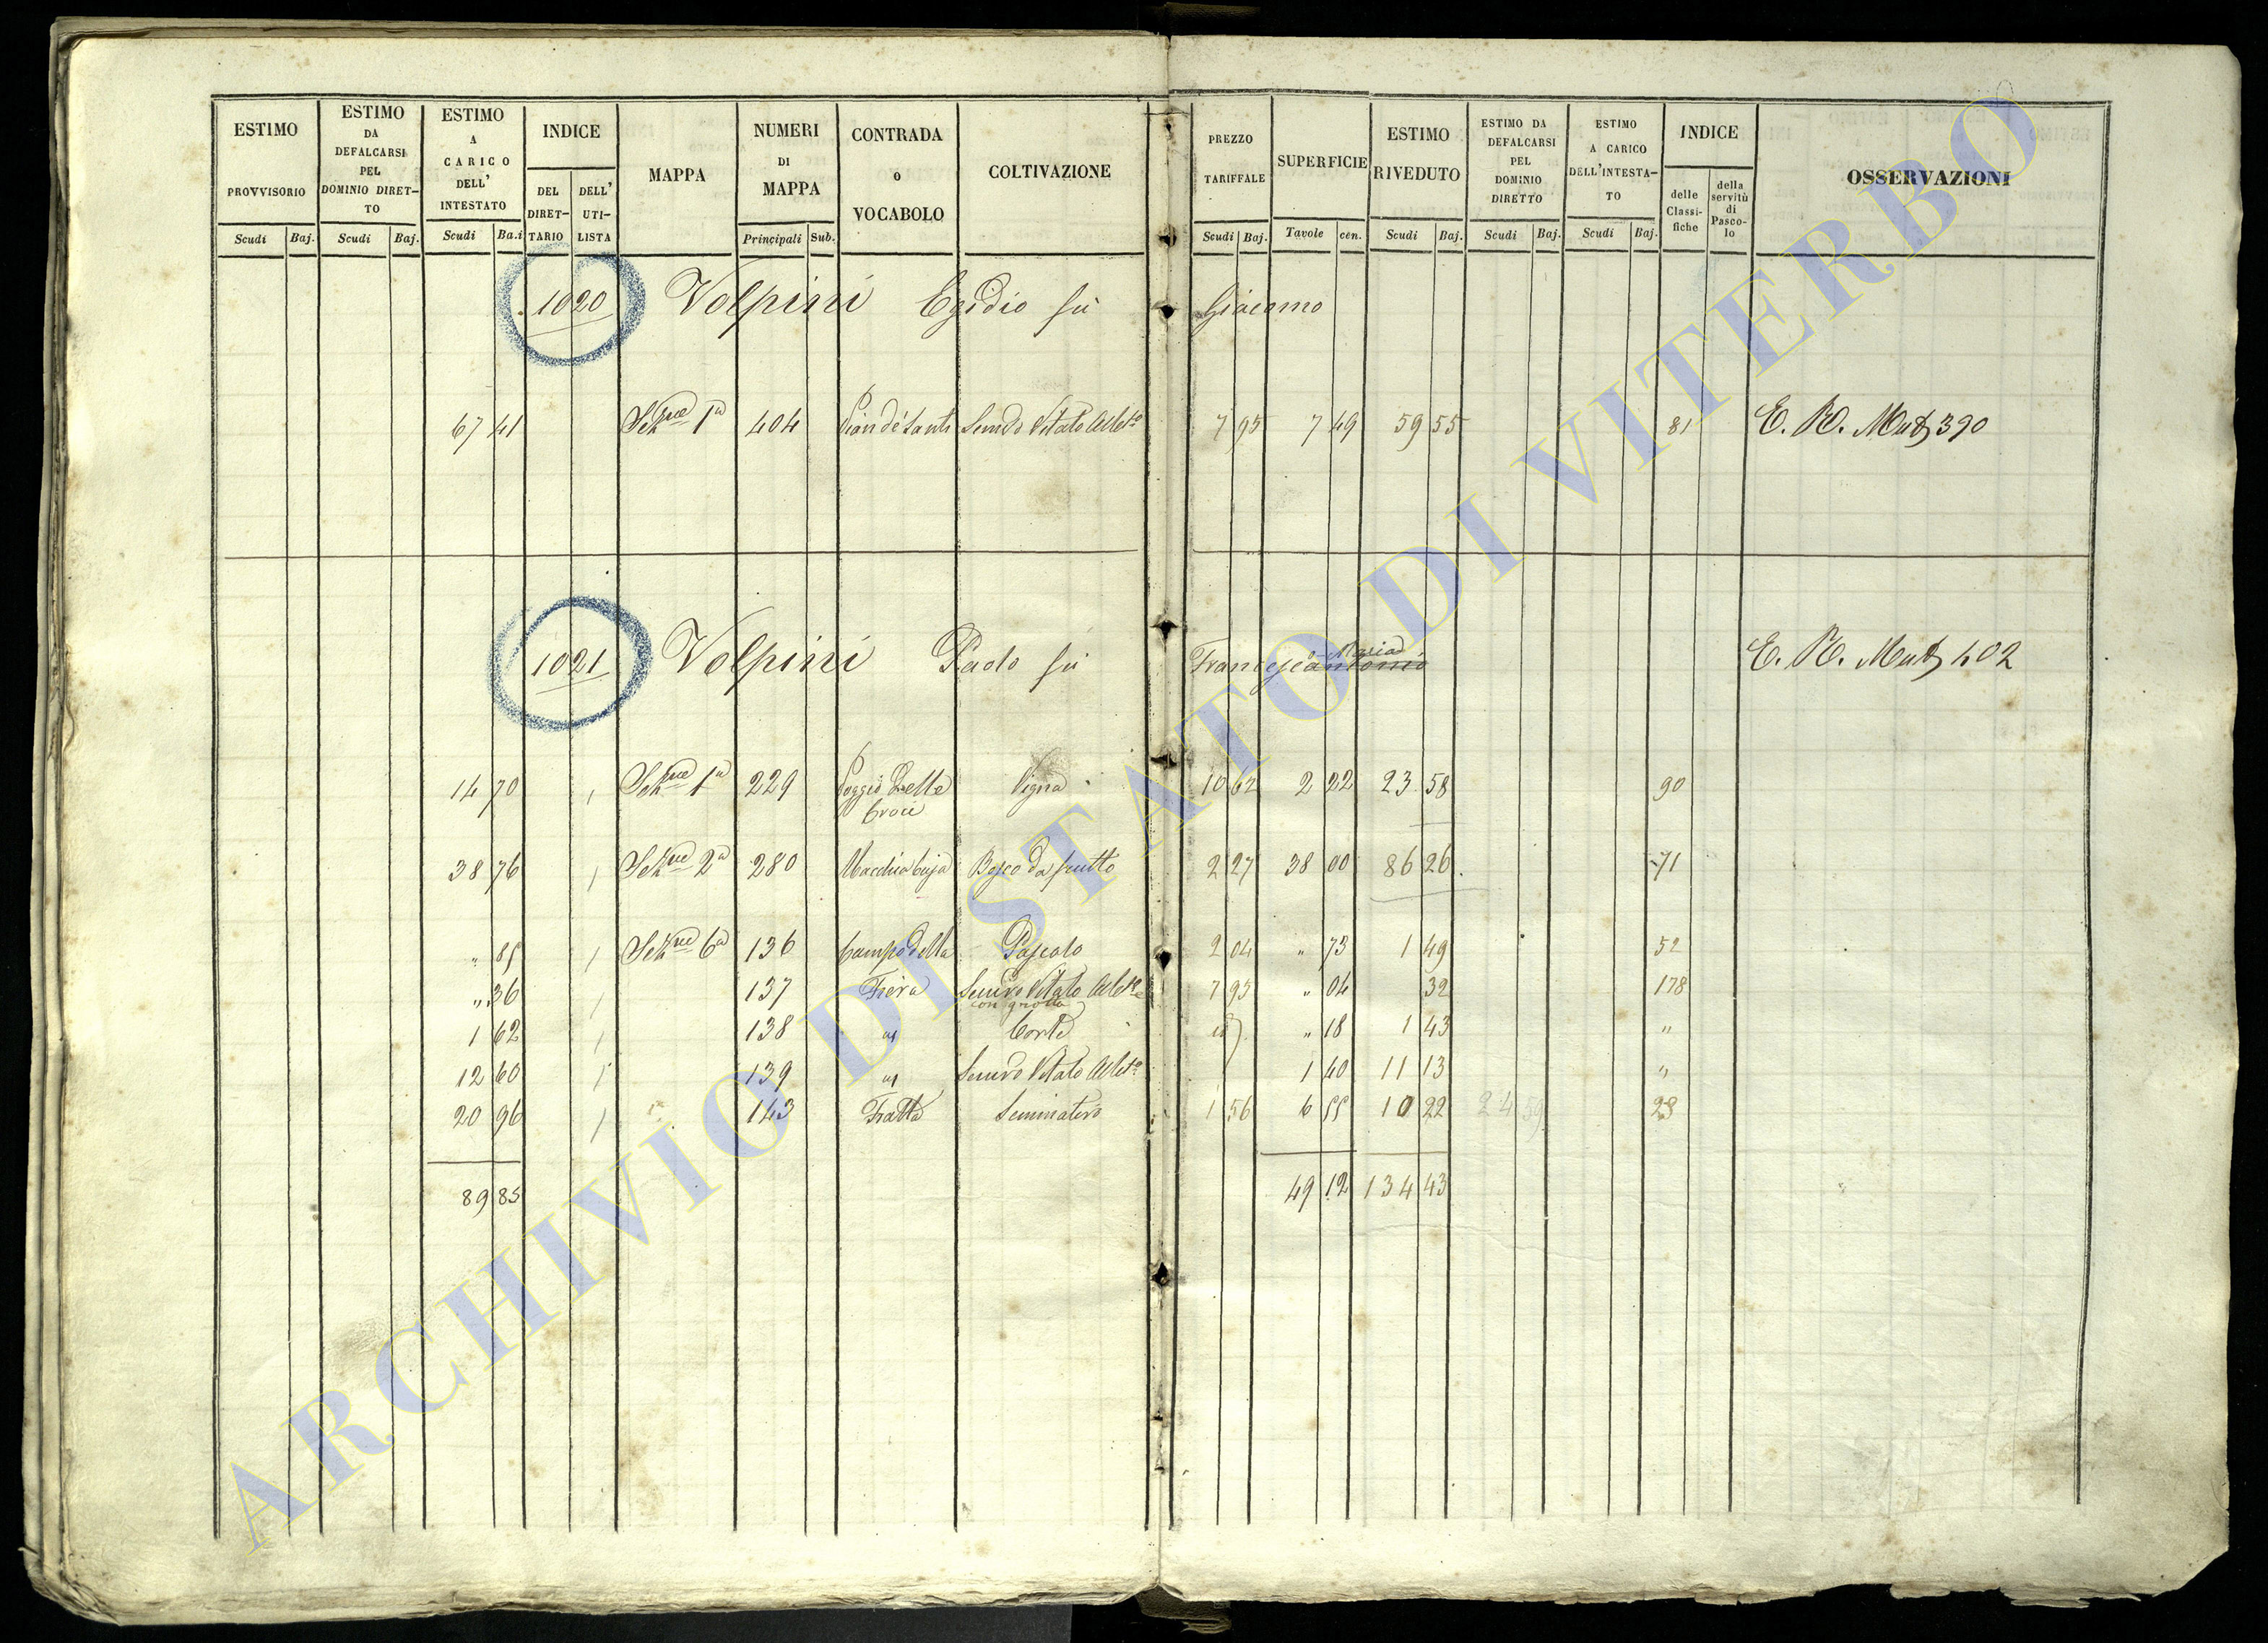 ESTIMO PROVVISORIO Scudi Baj.
ESTIMO DA DEFALCARSI PEL DOMINIO DIRET-TO Scudi Baj.
ESTIMO A CARICO DELL' INTESTATO Scudi Ba.i
INDICE DEL DIRET-TARIO DELL' UTI-LISTA
MAPPA
NUMERI DI MAPPA Principali Sub.
CONTRADA o VOCABOLO
COLTIVAZIONE
PREZZO TARIFFALE Scudi Baj.
SUPERFICIE Tavole cen.
ESTIMO RIVEDUTO Scudi Baj.
ESTIMO DA DEFALCARSI PEL DOMINIO DIRETTO Scudi Baj.
ESTIMO A CARICO DELL'INTESTA-TO Scudi Baj.
INDICE delle Classi-fiche della servitù di Pasco-lo
OSSERVAZIONI
1020 Volpini Egidio fù Giacomo
67 41 Sezne 1a 404 Pian de Santi Semvo Vitato Albto 7 95 7 49 59 55 81 E. R. Mut 390
1021 Volpini Paolo fù Francescantonio E. R. Mut 402
o Maria
14 70 1 Sezne 1a 229 Poggio della Vigna 10 62 2 22 23 58 90
Croce
38 76 1 Sezne 2a 280 Macchia buja Bosco da frutto 2 27 38 00 86 26 71
" 85 1 Sezne 6a 136 Campo della Pascolo 2 04 " 73 1 49 52
" 36 1 137 Fiera Semvo Vitato Albto 7 95 " 04 32 178
con grotta
1 62 1 138 Corte " 18 1 43 "
12 60 1 139 Semvo Vitato Albto 1 40 11 13 "
20 96 1 143 Fratta Seminativo 1 56 6 55 10 22 24 59 23
89 85 49 12 134 43
ARCHIVIO DI STATO DI VITERBO